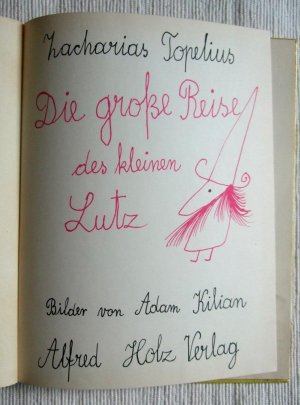 Zacharias Topelius
Die große Reise
des kleinen
Lutz
Bilder von Adam Kilian
Alfred Holz Verlag